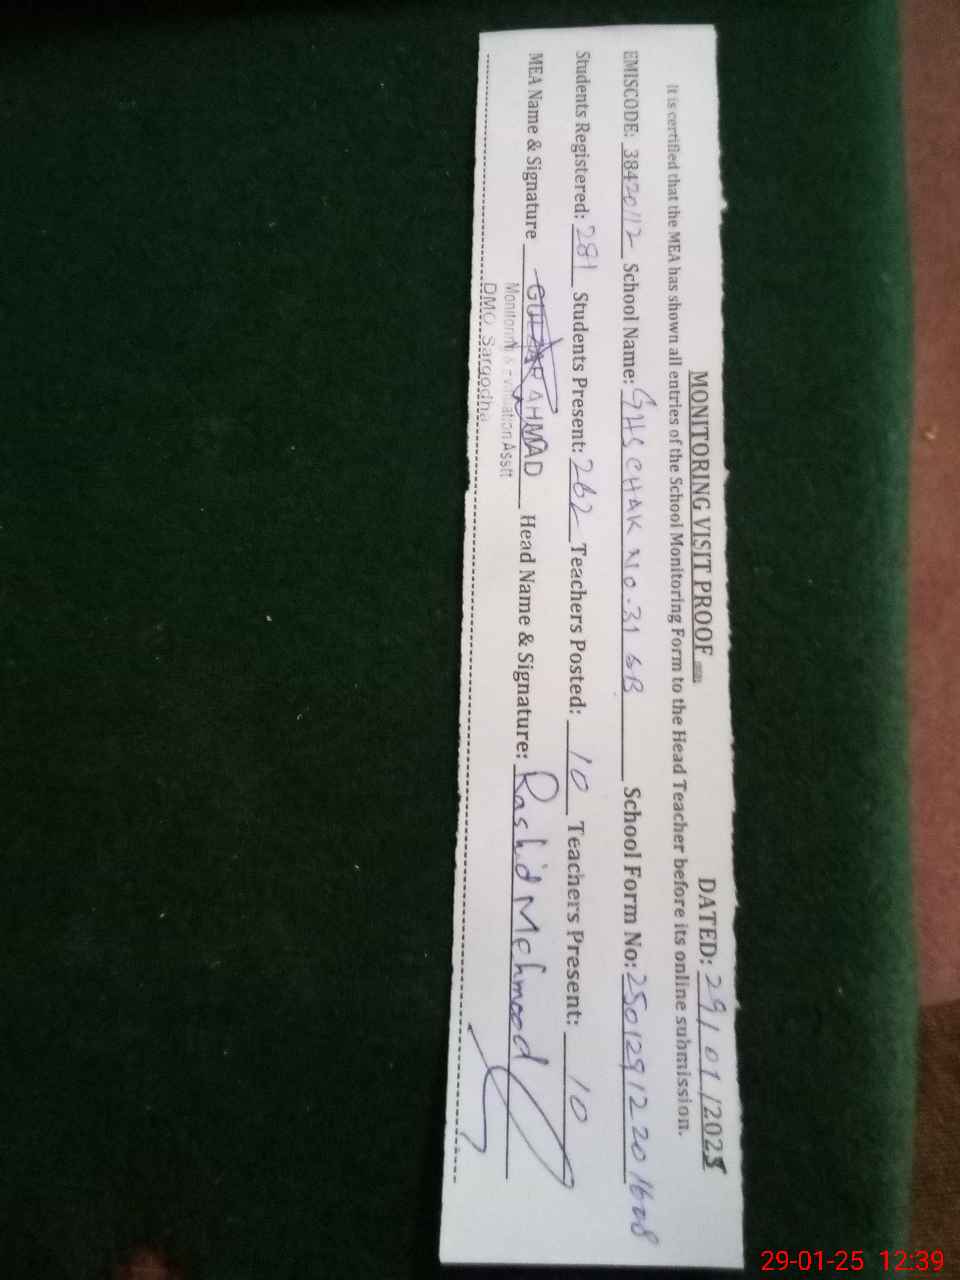 MONITORING VISIT PROOF DATED: 29/01/2025
It is certified that the MEA has shown all entries of the School Monitoring Form to the Head Teacher before its online submission.
EMISCODE: 38420112 School Name: GHS CHAK NO.31 SB School Form No: 25012912201608
Students Registered: 281 Students Present: 262 Teachers Posted: 10 Teachers Present: 10
MEA Name & Signature GULZAR AHMAD Head Name & Signature: Rashid Mehmood
Monitoring & Evaluation Asstt
DMO Sargodha
29-01-25 12:39